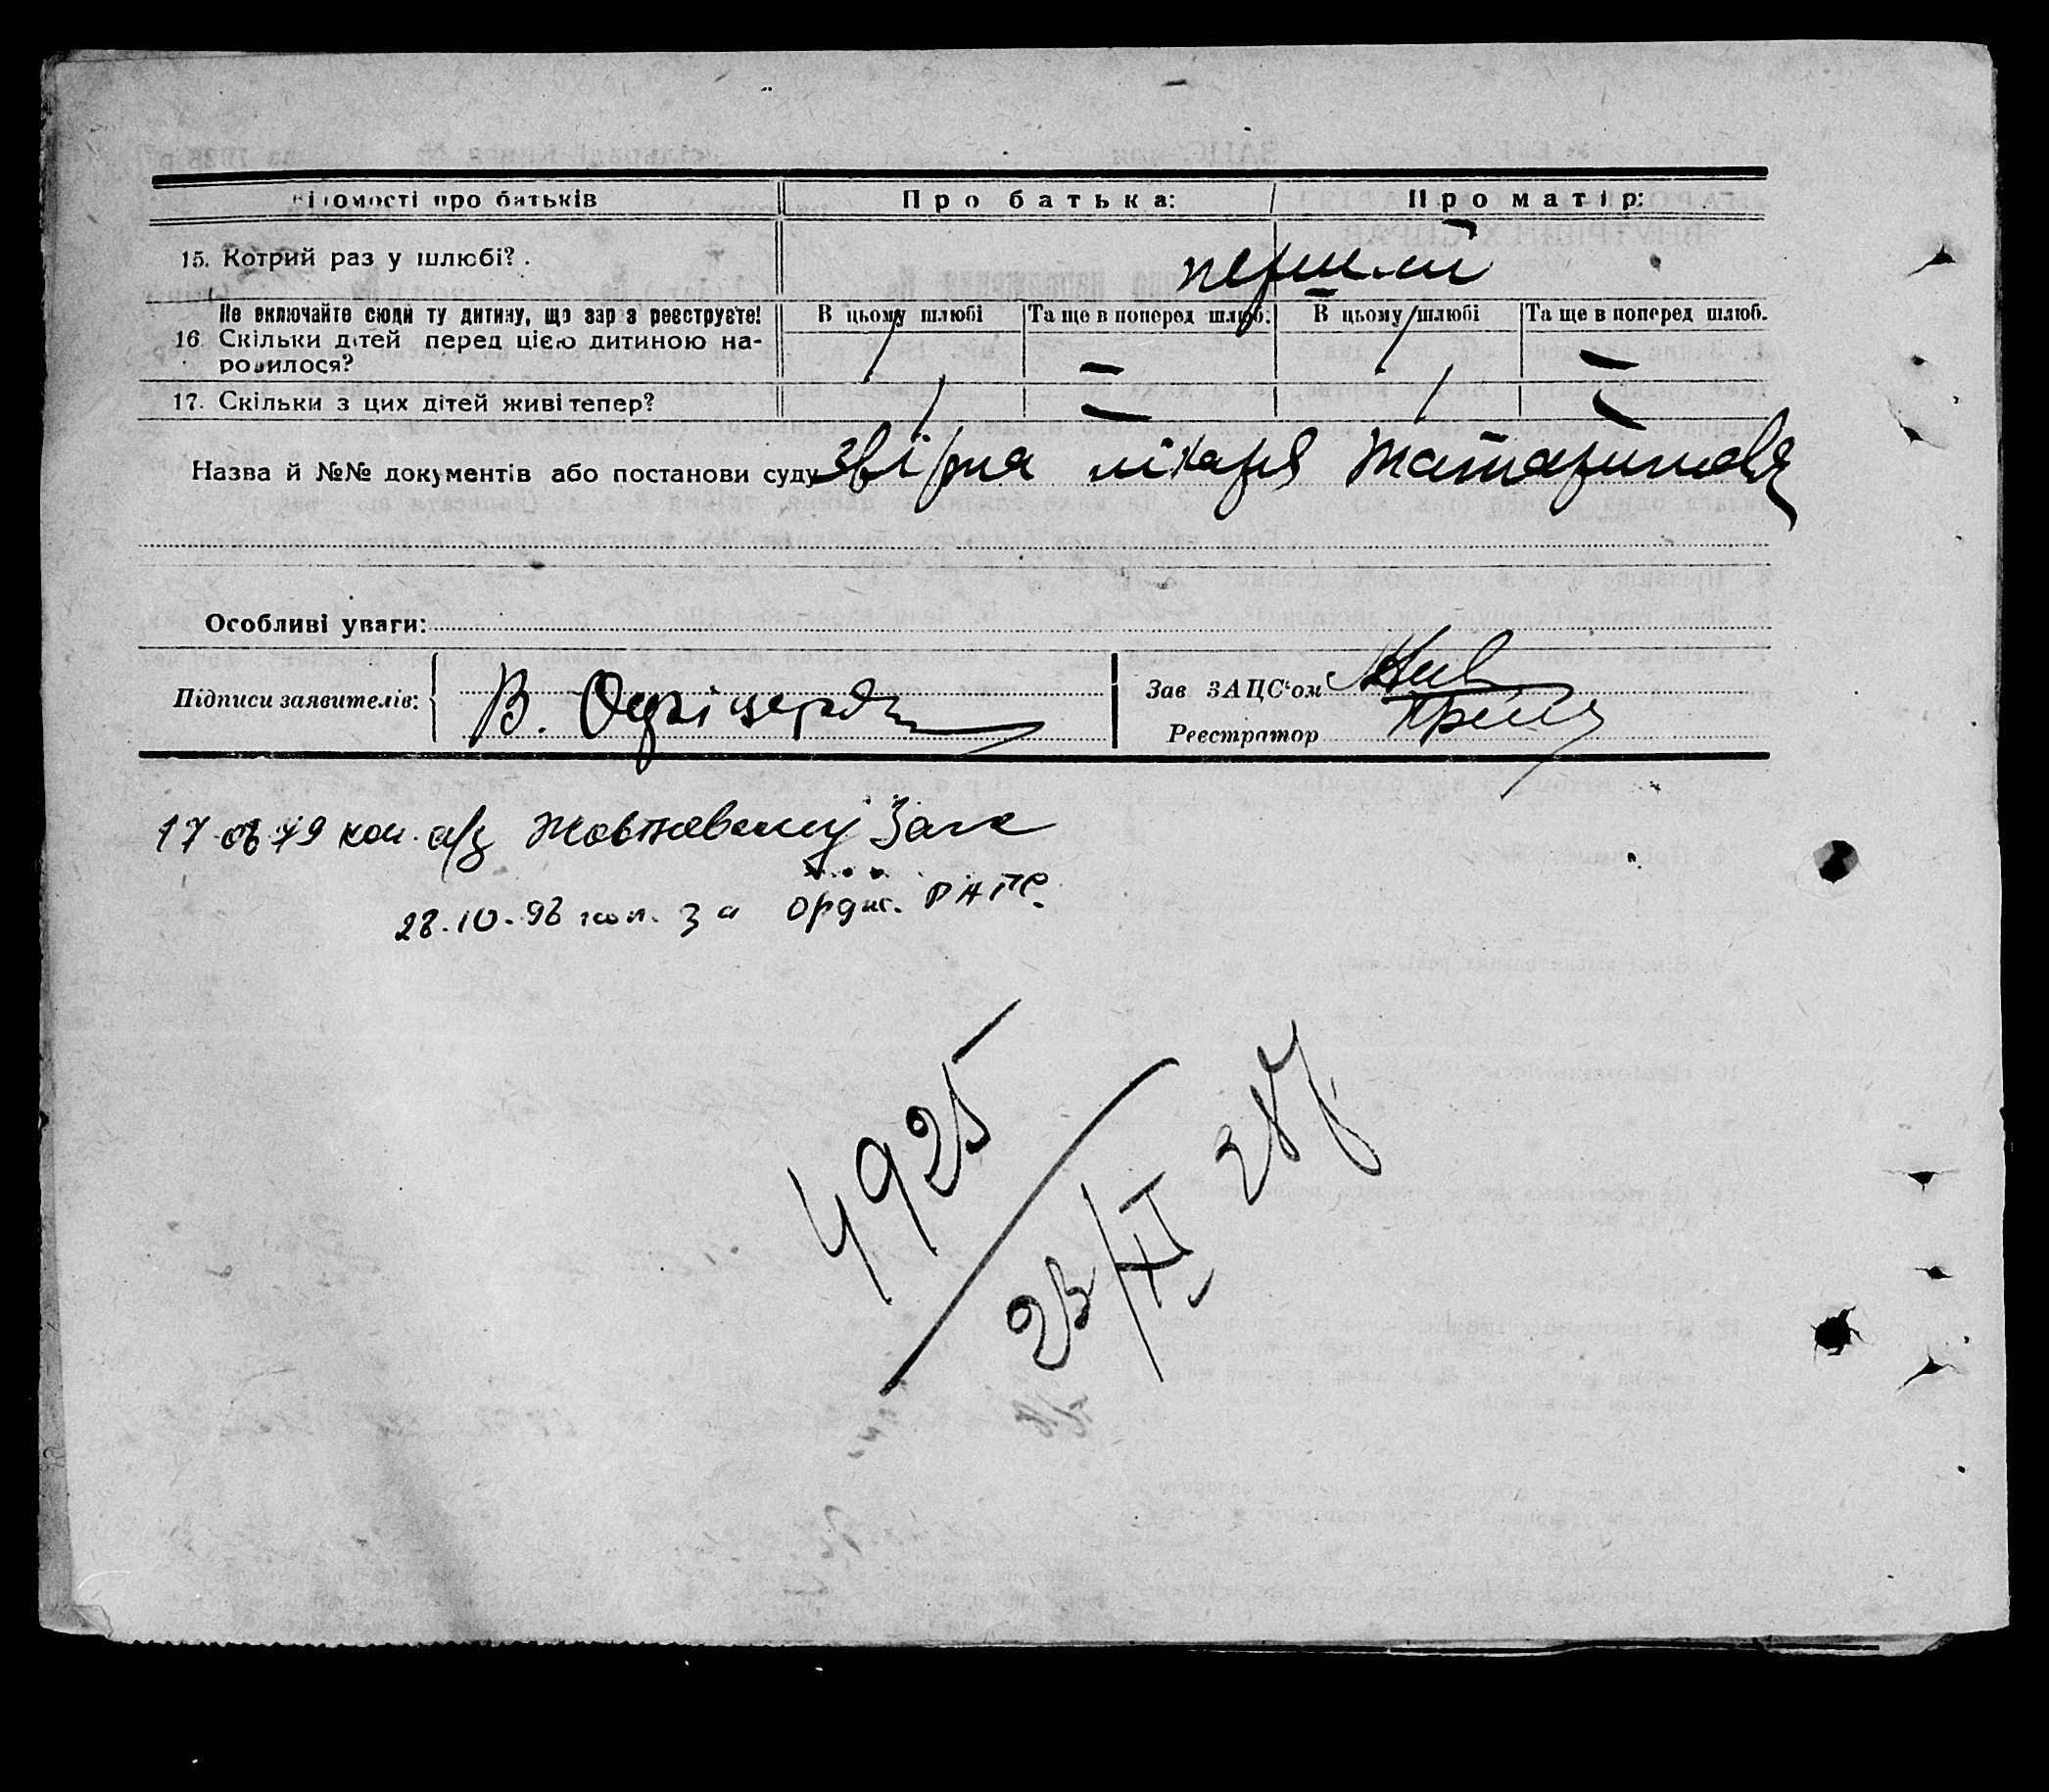 ідомості про батьків Про батька: Про матір:
15. Котрий раз у шлюбі? . перший
Не включайте сюди ту дитину, що зараз реєструєте! В цьому шлюбі Та ще в поперед шлюб. В цьому шлюбі Та ще в поперед шлюб.
16 Скільки дітей перед цією дитиною на-
родилося? 1 — 1 —
17. Скільки з цих дітей живі тепер? 1 — 1 —
Назва й №№ документів або постанови суду лікаря
Особливі уваги:
Підписи заявителів: В. Зав ЗАЦС'ом
Реєстратор
17 79 коп. а/з Жовтневому Загс
28.10.96 коп. за РАГС
4925
23/XI 38